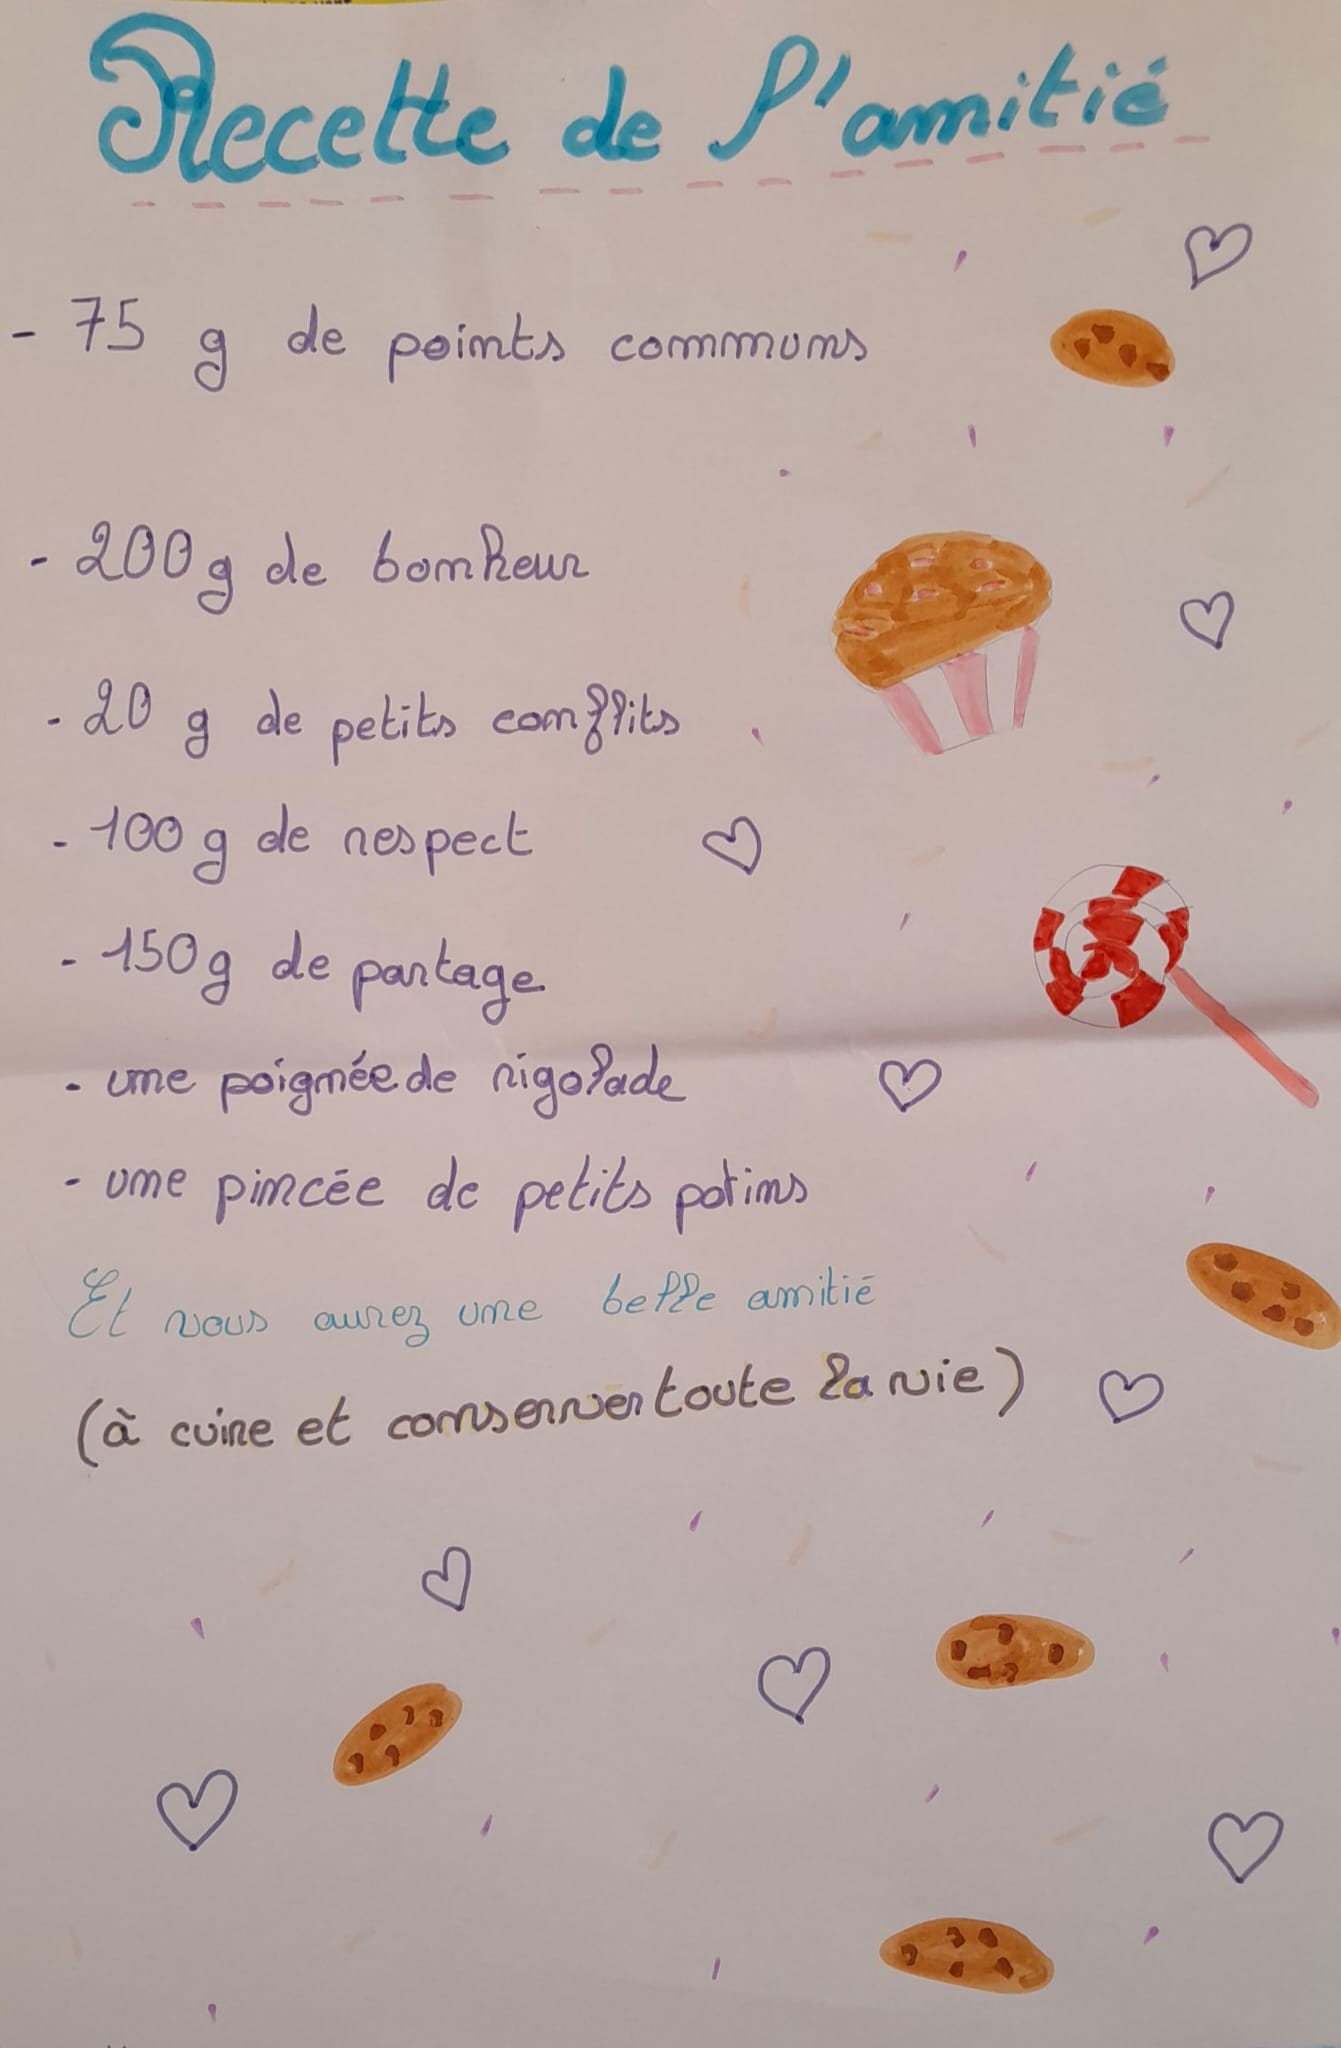 Recette de l'amitié
- 75 g de points communs
- 200g de bonheur
- 20 g de petits conflits
- 100g de respect
- 150g de partage
- une poignée de rigolade
- une pincée de petits potins
Et vous aurez une belle amitié
(à cuire et conserver toute la vie)